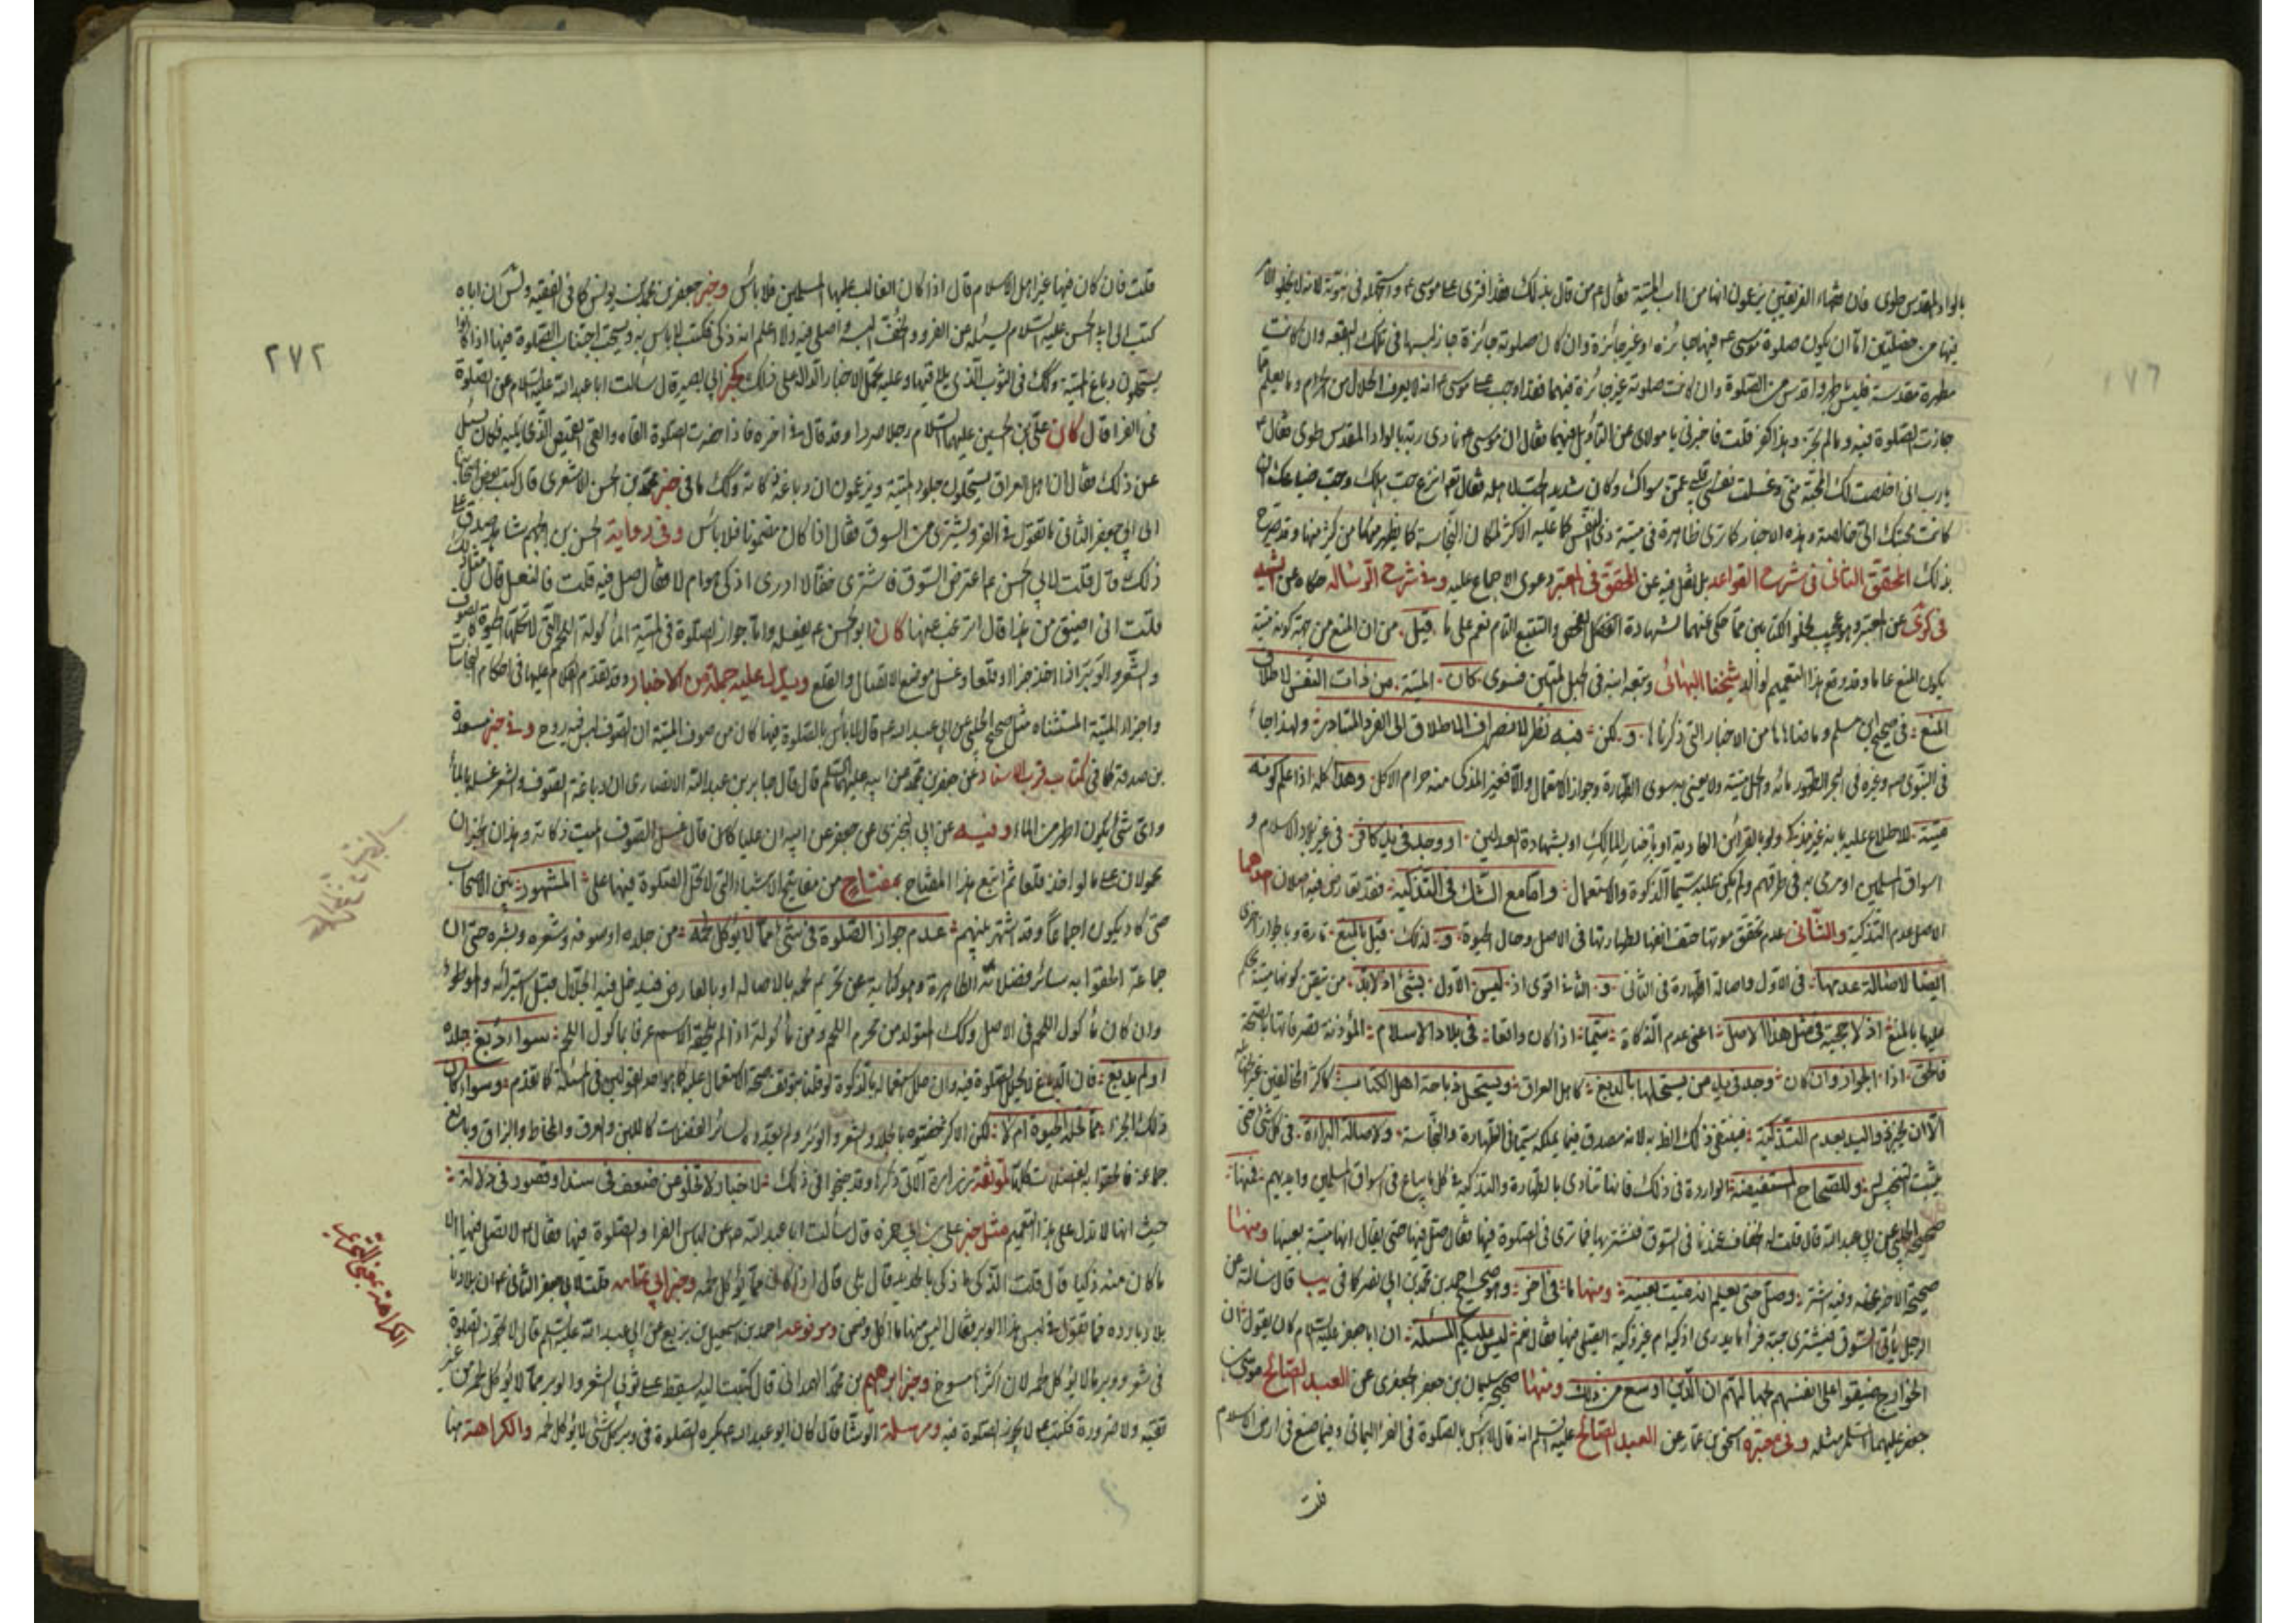 بالواد المقدس طوى فان فقهاء الفريقين يزعمون انها من اهاب الميتة فقال ع من قال بذلك فقد افترى على موسى ع واستجهله في نبوته لانه لا يخلو الامر
فيها من خصلتين اما ان يكون صلوة موسى ع فيها جائزة او غير جائزة وان كان صلوته جائزة جاز لبسها في تلك البقعة وان كانت
مطهرة مقدسة فليس باطهر واقدس من الصلوة وان كانت صلوته غير جائزة فيهما فقد اوجب على موسى ع انه لا يعرف الحلال من الحرام وما يعلم ما
جازت الصلوة فيه وما لم تجز وهذا كفر قلت فاخبرني يا مولاى عن التأويل فيهما فقال ان موسى ع نادى ربه بالواد المقدس طوى فقال
يا رب انى اخلصت لك المحبة منى وغسلت قلبى عمن سواك وكان شديد الحب لاهله فقال تعالى انزع حب اهلك من قلبك ان
كانت محبتك الى خالصة وهذه الاخبار كما ترى ظاهرة في ميتة ذى النفس كما عليه الاكثر لمكان النجاسة كما يظهر من كثير منها وقد صرح
بذلك المحقق الثانى فى شرح القواعد بل نقل فيه عن المحقق فى المعتبر دعوى الاجماع عليه وفى شرح الرسالة حكاه عن الشهيد
فى كرى عن المعتبر وهو عجيب لخلو الكتابين مما حكى عنهما لشهادة الفحص والتتبع التام نعم على ما قيل من ان المنع من جهة كونه ميتة
يكون المنع عاما وقد وقع هذا التعميم لوالد شيخنا البهائى وتبعه ابنه فى الحبل المتين فسوى كان الميتة من ذات النفس لاطلاق
المنع فى صحيح ابن مسلم وما ضاهاها من الاخبار التى ذكرناها و لكن فيه نظر لانصراف الاطلاق الى الفرد المتبادر ولهذا جاء
فى النبوى ص وغيره فى البحر الطهور ماؤه والحل ميتته ولا يعنى به سوى الطهارة وجواز الاستعمال والا فغير المذكى منه حرام الاكل وهذا كله اذا علم كونه
ميتة للاطلاع عليه بانه غير مذكى ولو بالقرائن العادية او باخبار المالك او بشهادة العدلين او وجد فى يد كافر فى غير بلاد الاسلام و
اسواق المسلمين او مرمى به فى طرقهم ولم يكن عليه سيما التذكية والاستعمال واما مع الشك فى التذكية فقد تعارض فيه اصلان احدهما
الاصل عدم التذكية والثانى عدم تحقق موتها حتف انفها لطهارتها فى الاصل وحال الحيوة و لذلك قيل بالمنع تارة وبالجواز اخرى
ايضا لاصالة عدمها فى الاول واصالة الطهارة فى الثانى و الثانى اقوى اذ ليس الاول بشئ اذ لابد من تيقن كونها ميتة يحكم
عليها بالمنع اذ لا حجية فى مثل هذا الاصل اعنى عدم الذكاة سيما اذا كان واقعا فى بلاد الاسلام المؤذنة تصرفاتها بالصحة
فالحق اذا الجواز وان كان وجد فى يد من يستحلها بالدبغ كاهل العراق ويستحل ذباحة اهل الكتاب كاكثر المخالفين
الا ان يخبر ذو اليد بعدم التذكية فينبغى ذلك الظن به لانه مصدق فيما يملكه سيما فى الطهارة والنجاسة ولاصالة البراءة فى كل شئ حتى
يثبت التنجيس وللصحاح المستفيضة الواردة فى ذلك فانها تنادى بالطهارة والتذكية فى كل ما يباع فى اسواق المسلمين وايديهم فمنها
صحيح الحلبى عن ابى عبد الله قال قلت له الخفاف عندنا فى السوق فنشتريها فما ترى فى الصلوة فيها فقال صل فيها حتى يقال انها ميتة بعينها ومنها
صحيحه الآخر عنه وفيه اشتر وصل حتى تعلم انه ميت بعينه ومنها ما فى آخر وهو صحيح احمد بن محمد بن ابى نصر كما فى يب قال سالته عن
الرجل ياتى السوق فيشترى جبة فراء ما يدرى اذكية ام غير ذكية ايصلى فيها فقال نعم ليس عليكم المسئلة ان ابا جعفر عليه السلام كان يقول ان
الخوارج ضيقوا على انفسهم بجهالتهم ان الدين اوسع من ذلك ومنها صحيح سليمان بن جعفر الجعفرى عن العبد الصالح موسى بن
جعفر عليهما السلام مثله وفى معتبرة اسحق بن عمار عن العبد الصالح عليه السلم انه قال لا باس بالصلوة فى الفراء اليمانى وفيما صنع فى ارض الاسلام
قلت
٢٧٢
قلت فان كان فيها غير اهل الاسلام قال اذا كان الغالب عليها المسلمين فلا باس وخبر جعفر بن محمد بن يونس كما فى الفقيه ان اباه
كتب الى ابى الحسن عليه السلام يسئله عن الفرو والخف البسه واصلى فيه ولا اعلم انه ذكى فكتب لا باس به ويستحب اجتناب الصلوة فيها اذا كانوا
يستحلون دباغ الميتة وكك فى الثوب الذى يلاقيها وعليه تحمل الاخبار الدالة على ذلك كخبر ابى بصير قال سالت ابا عبد الله عليه السلام عن الصلوة
فى الفراء قال كان على بن الحسين عليهما السلام رجلا صردا وقد قال فى آخره فاذا حضرت الصلوة القاه والقى القميص الذى يليه فكان يسئل
عن ذلك فقال ان اهل العراق يستحلون جلود الميتة ويزعمون ان دباغه ذكاته وكك ما فى خبر محمد بن الحسن الاشعرى قال كتب بعض اصحابنا
الى ابى جعفر الثانى ما تقول فى الفرو يشترى من السوق فقال اذا كان مضمونا فلا باس وفى رواية الحسن بن الجهم شاهد صدق على
ذلك قال قلت لابى الحسن ع اعترض السوق فاشترى خفا لا ادرى اذكى هو ام لا فقال صل فيه قلت فالنعل قال مثل ذلك
قلت انى اضيق من هذا قال اترغب عما كان ابو الحسن ع يفعله واما جواز الصلوة فى الميتة الماكولة اللحم التى لا تحلها الحيوة كالصوف
والشعر والوبر اذا اخذ جزا او قلعا وغسل موضع الاتصال والقلع ويدل عليه جملة من الاخبار وقد تقدم الكلام عليها فى احكام النجاسات
واجزاء الميتة المستثناة مثل صحيح الحلبى عن ابى عبد الله ع قال لا باس بالصلوة فيما كان من صوف الميتة ان الصوف ليس فيه روح وفى خبر مسعدة
بن صدقة كما فى كتاب قرب الاسناد عن جعفر بن محمد عن ابيه عليهما السلم قال قال جابر بن عبد الله الانصارى ان دباغة الصوف والشعر غسله بالماء
واى شئ يكون اطهر من الماء وفيه عن ابى البخترى عن جعفر عن ابيه ان عليا ع قال غسل الصوف الميت ذكاته وهذان الخبران
محمولان على ما لو اخذ قلعا ثم اتبع هذا المفتاح بمفتاح من مفاتيح الاشياء التى لا تحل الصلوة فيها على المشهور بين الاصحاب
حتى كاد يكون اجماعا وقد اشتهر بينهم عدم جواز الصلوة فى شئ مما لا يؤكل لحمه من جلده او صوفه وشعره ووبره حتى ان
جماعة الحقوا به سائر فضلاته الطاهرة وهو كناية عن تحريم لحمه بالاصالة او بالعارض فيدخل فيه الجلال قبل استبرائه والموطوء
وان كان ماكول اللحم فى الاصل وكك المتولد من محرم اللحم ومن ماكوله اذا لم يلحقه الاسم عرفا بماكول اللحم سواء دبغ جلده
او لم يدبغ فان الدبغ لا يحل الصلوة فيه وان حل استعماله بالذكوة لو قلنا بتوقف صحة الاستعمال عليه كما هو احد القولين فى المسئلة كما تقدم وسواء كان
ذلك الجزء مما تحله الحيوة ام لا لكن الاكثر خصوه بالجلد والشعر والوبر ولم يعدوه لسائر الفضلات كاللبن والعرق والمخاط والبزاق وبالغ
جماعة فالحقوا به الفضلات كلها لموثقة زرارة الآتى ذكرها وقد صرحوا فى ذلك لاخبار ولا تخلو من ضعف فى سند او قصور فى دلالة
حيث انها لا تدل على هذا التعميم مثل خبر على بن ابى حمزة قال سالت ابا عبد الله ع عن لباس الفراء والصلوة فيها فقال ع لا تصل فيها الا
ما كان منه ذكيا قال قلت الذكى ما ذكى بالحديد قال بلى قال اذا كان مما يؤكل لحمه وخبر ابى تمامه قلت لابى جعفر الثانى ع ان بلادنا
بلاد باردة فما تقول فى لبس هذا الوبر فقال البس منها ما اكل وضمن ومرفوعة احمد بن اسمعيل بن بزيع عن ابى عبد الله عليه السلم قال لا تجوز الصلوة
فى شعر ووبر ما لا يؤكل لحمه لان اكثرها مسوخ وخبر ابراهيم بن محمد الهمدانى قال كتبت اليه يسقط على ثوبى الشعر والوبر مما لا يؤكل لحمه من غير
تقية ولا ضرورة فكتب ع لا يجوز الصلوة فيه ومرسلة الوشا قال كان ابو عبد الله ع يكره الصلوة فى وبر كل شئ لا يؤكل لحمه والكراهة هنا
الكراهة بمعنى التحريم